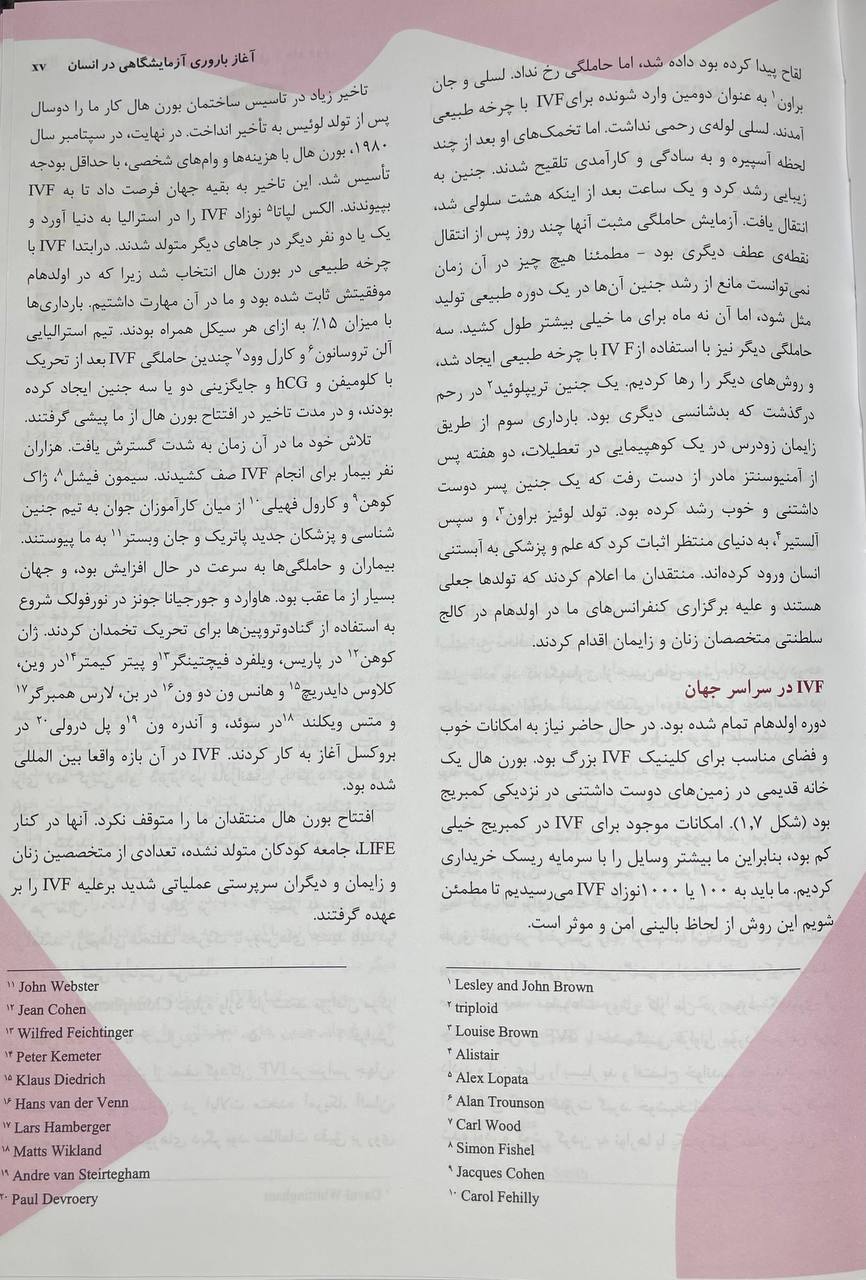 آغاز باروری آزمایشگاهی در انسان xv
لقاح پیدا کرده بود داده شد، اما حاملگی رخ نداد. لسلی و جان
براون۱ به عنوان دومین وارد شونده برای IVF با چرخه طبیعی
آمدند. لسلی لوله‌ی رحمی نداشت. اما تخمک‌های او بعد از چند
لحظه آسپیره و به سادگی و کارآمدی تلقیح شدند. جنین به
زیبایی رشد کرد و یک ساعت بعد از اینکه هشت سلولی شد،
انتقال یافت. آزمایش حاملگی مثبت آنها چند روز پس از انتقال
نقطه‌ی عطف دیگری بود – مطمئنا هیچ چیز در آن زمان
نمی‌توانست مانع از رشد جنین آن‌ها در یک دوره طبیعی تولید
مثل شود، اما آن نه ماه برای ما خیلی بیشتر طول کشید. سه
حاملگی دیگر نیز با استفاده از IV F با چرخه طبیعی ایجاد شد،
و روش‌های دیگر را رها کردیم. یک جنین تریپلوئید۲ در رحم
درگذشت که بدشانسی دیگری بود. بارداری سوم از طریق
زایمان زودرس در یک کوهپیمایی در تعطیلات، دو هفته پس
از آمنیوسنتز مادر از دست رفت که یک جنین پسر دوست
داشتنی و خوب رشد کرده بود. تولد لوئیز براون۳، و سپس
آلستیر۴، به دنیای منتظر اثبات کرد که علم و پزشکی به آبستنی
انسان ورود کرده‌اند. منتقدان ما اعلام کردند که تولدها جعلی
هستند و علیه برگزاری کنفرانس‌های ما در اولدهام در کالج
سلطنتی متخصصان زنان و زایمان اقدام کردند.
IVF در سراسر جهان
دوره اولدهام تمام شده بود. در حال حاضر نیاز به امکانات خوب
و فضای مناسب برای کلینیک IVF بزرگ بود. بورن هال یک
خانه قدیمی در زمین‌های دوست داشتنی در نزدیکی کمبریج
بود (شکل ۱,۷). امکانات موجود برای IVF در کمبریج خیلی
کم بود، بنابراین ما بیشتر وسایل را با سرمایه ریسک خریداری
کردیم. ما باید به ۱۰۰ یا ۱۰۰۰نوزاد IVF می‌رسیدیم تا مطمئن
شویم این روش از لحاظ بالینی امن و موثر است.
۱ Lesley and John Brown
۲ triploid
۳ Louise Brown
۴ Alistair
۵ Alex Lopata
۶ Alan Trounson
۷ Carl Wood
۸ Simon Fishel
۹ Jacques Cohen
۱۰ Carol Fehilly
تاخیر زیاد در تاسیس ساختمان بورن هال کار ما را دوسال
پس از تولد لوئیس به تأخیر انداخت. در نهایت، در سپتامبر سال
۱۹۸۰، بورن هال با هزینه‌ها و وام‌های شخصی، با حداقل بودجه
تأسیس شد. این تاخیر به بقیه جهان فرصت داد تا به IVF
بپیوندند. الکس لپاتا۵ نوزاد IVF را در استرالیا به دنیا آورد و
یک یا دو نفر دیگر در جاهای دیگر متولد شدند. درابتدا IVF با
چرخه طبیعی در بورن هال انتخاب شد زیرا که در اولدهام
موفقیتش ثابت شده بود و ما در آن مهارت داشتیم. بارداری‌ها
با میزان ۱۵٪ به ازای هر سیکل همراه بودند. تیم استرالیایی
آلن تروسانون۶ و کارل وود۷ چندین حاملگی IVF بعد از تحریک
با کلومیفن و hCG و جایگزینی دو یا سه جنین ایجاد کرده
بودند، و در مدت تاخیر در افتتاح بورن هال از ما پیشی گرفتند.
تلاش خود ما در آن زمان به شدت گسترش یافت. هزاران
نفر بیمار برای انجام IVF صف کشیدند. سیمون فیشل۸، ژاک
کوهن۹ و کارول فهیلی۱۰ از میان کارآموزان جوان به تیم جنین
شناسی و پزشکان جدید پاتریک و جان وبستر۱۱ به ما پیوستند.
بیماران و حاملگی‌ها به سرعت در حال افزایش بود، و جهان
بسیار از ما عقب بود. هاوارد و جورجیانا جونز در نورفولک شروع
به استفاده از گنادوتروپین‌ها برای تحریک تخمدان کردند. ژان
کوهن۱۲ در پاریس، ویلفرد فیچتینگر۱۳و پیتر کیمتر۱۴در وین،
کلاوس دایدریچ۱۵ و هانس ون دو ون۱۶ در بن، لارس همبرگر۱۷
و متس ویکلند ۱۸در سوئد، و آندره ون ۱۹و پل درولی۲۰ در
بروکسل آغاز به کار کردند. IVF در آن بازه واقعا بین المللی
شده بود.
افتتاح بورن هال منتقدان ما را متوقف نکرد. آنها در کنار
LIFE، جامعه کودکان متولد نشده، تعدادی از متخصصین زنان
و زایمان و دیگران سرپرستی عملیاتی شدید برعلیه IVF را بر
عهده گرفتند.
۱۱ John Webster
۱۲ Jean Cohen
۱۳ Wilfred Feichtinger
۱۴ Peter Kemeter
۱۵ Klaus Diedrich
۱۶ Hans van der Venn
۱۷ Lars Hamberger
۱۸ Matts Wikland
۱۹ Andre van Steirtegham
۲۰ Paul Devroery